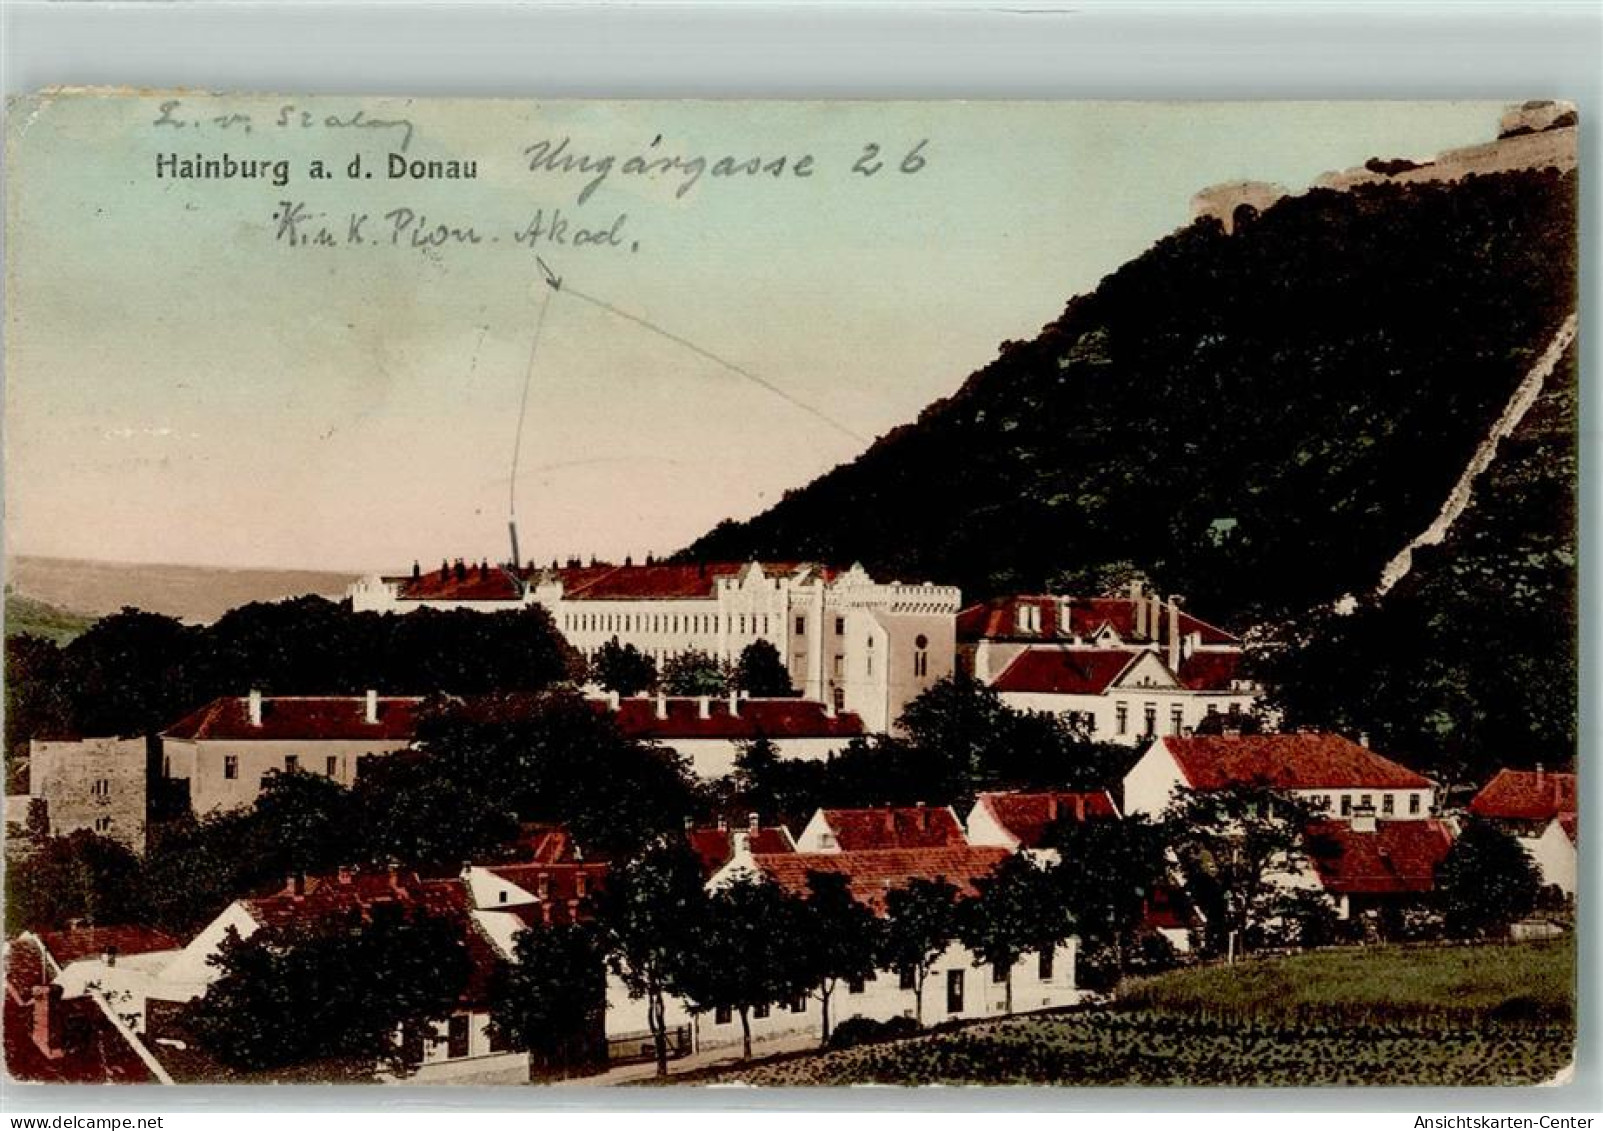 L. v. Szalay
Hainburg a. d. Donau
Ungárgasse 26
K. u K. Pion. Akad.
Ansichtskarten-Center